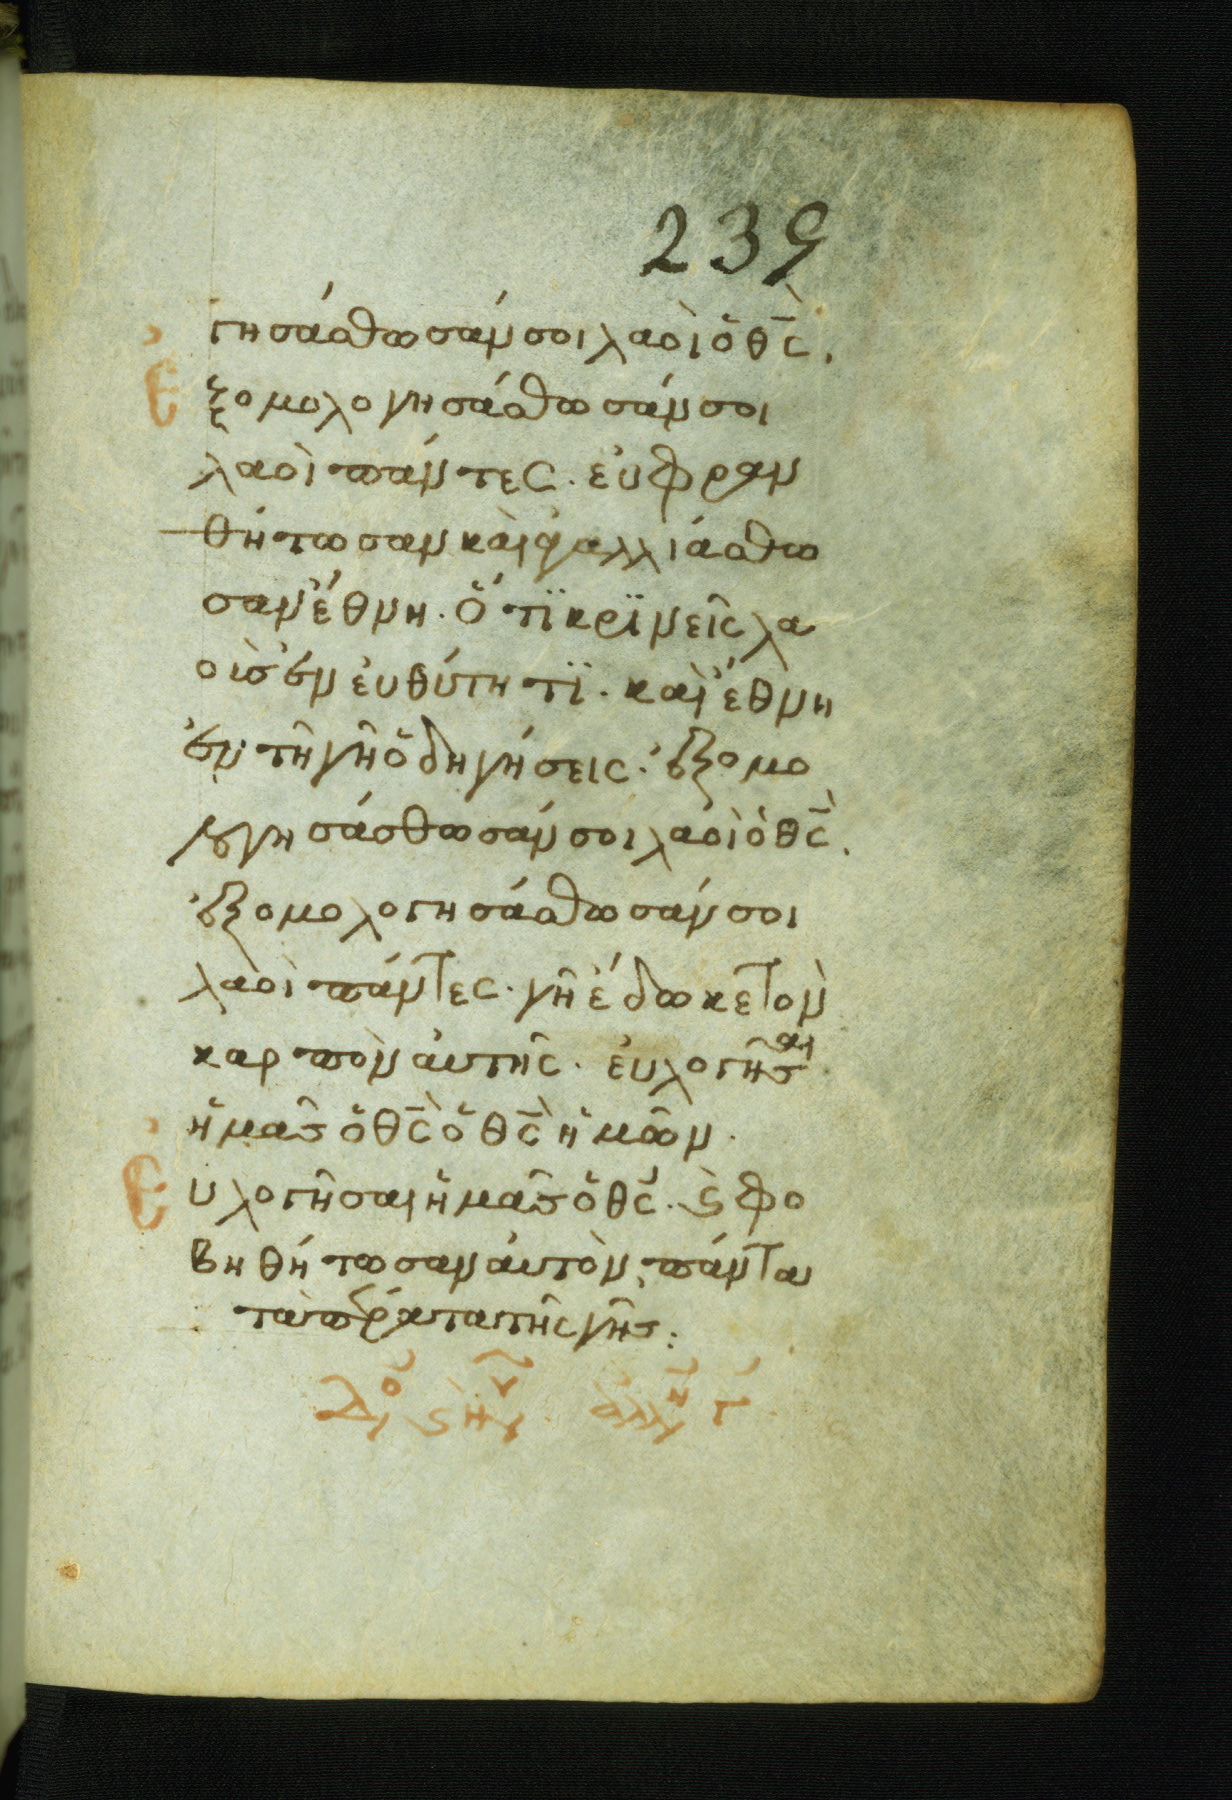 239
γησάσθωσάν σοι λαοὶ ὁ θ̅ς̅.
Ἐξομολογησάσθωσάν σοι
λαοὶ πάντες. εὐφραν
θήτωσαν καὶ ἀγαλλιάσθω
σαν ἔθνη. ὅτϊ κρϊνεῖς λα
οὺσ ἐν εὐθύτητϊ. καὶ ἔθνη
ἐν τῆ γῆ ὁδηγήσεις. ἐξομο
λογησάσθωσάν σοι λαοὶ ὁ θ̅ς̅.
ἐξομολογησάσθωσάν σοι
λαοὶ πάντες. γῆ ἔδωκε τὸν
καρπὸν αὐτῆς. εὐλογῆσαι
ἡμᾶσ ὁ θ̅ς̅ ὁ θ̅ς̅ ἡμῶν.
Εὐλογῆσαι ἡμᾶσ ὁ θ̅ς̅. ϗ φο
βηθήτωσαν αὐτὸν πάντα
τὰ πέρατα τῆς γῆσ: